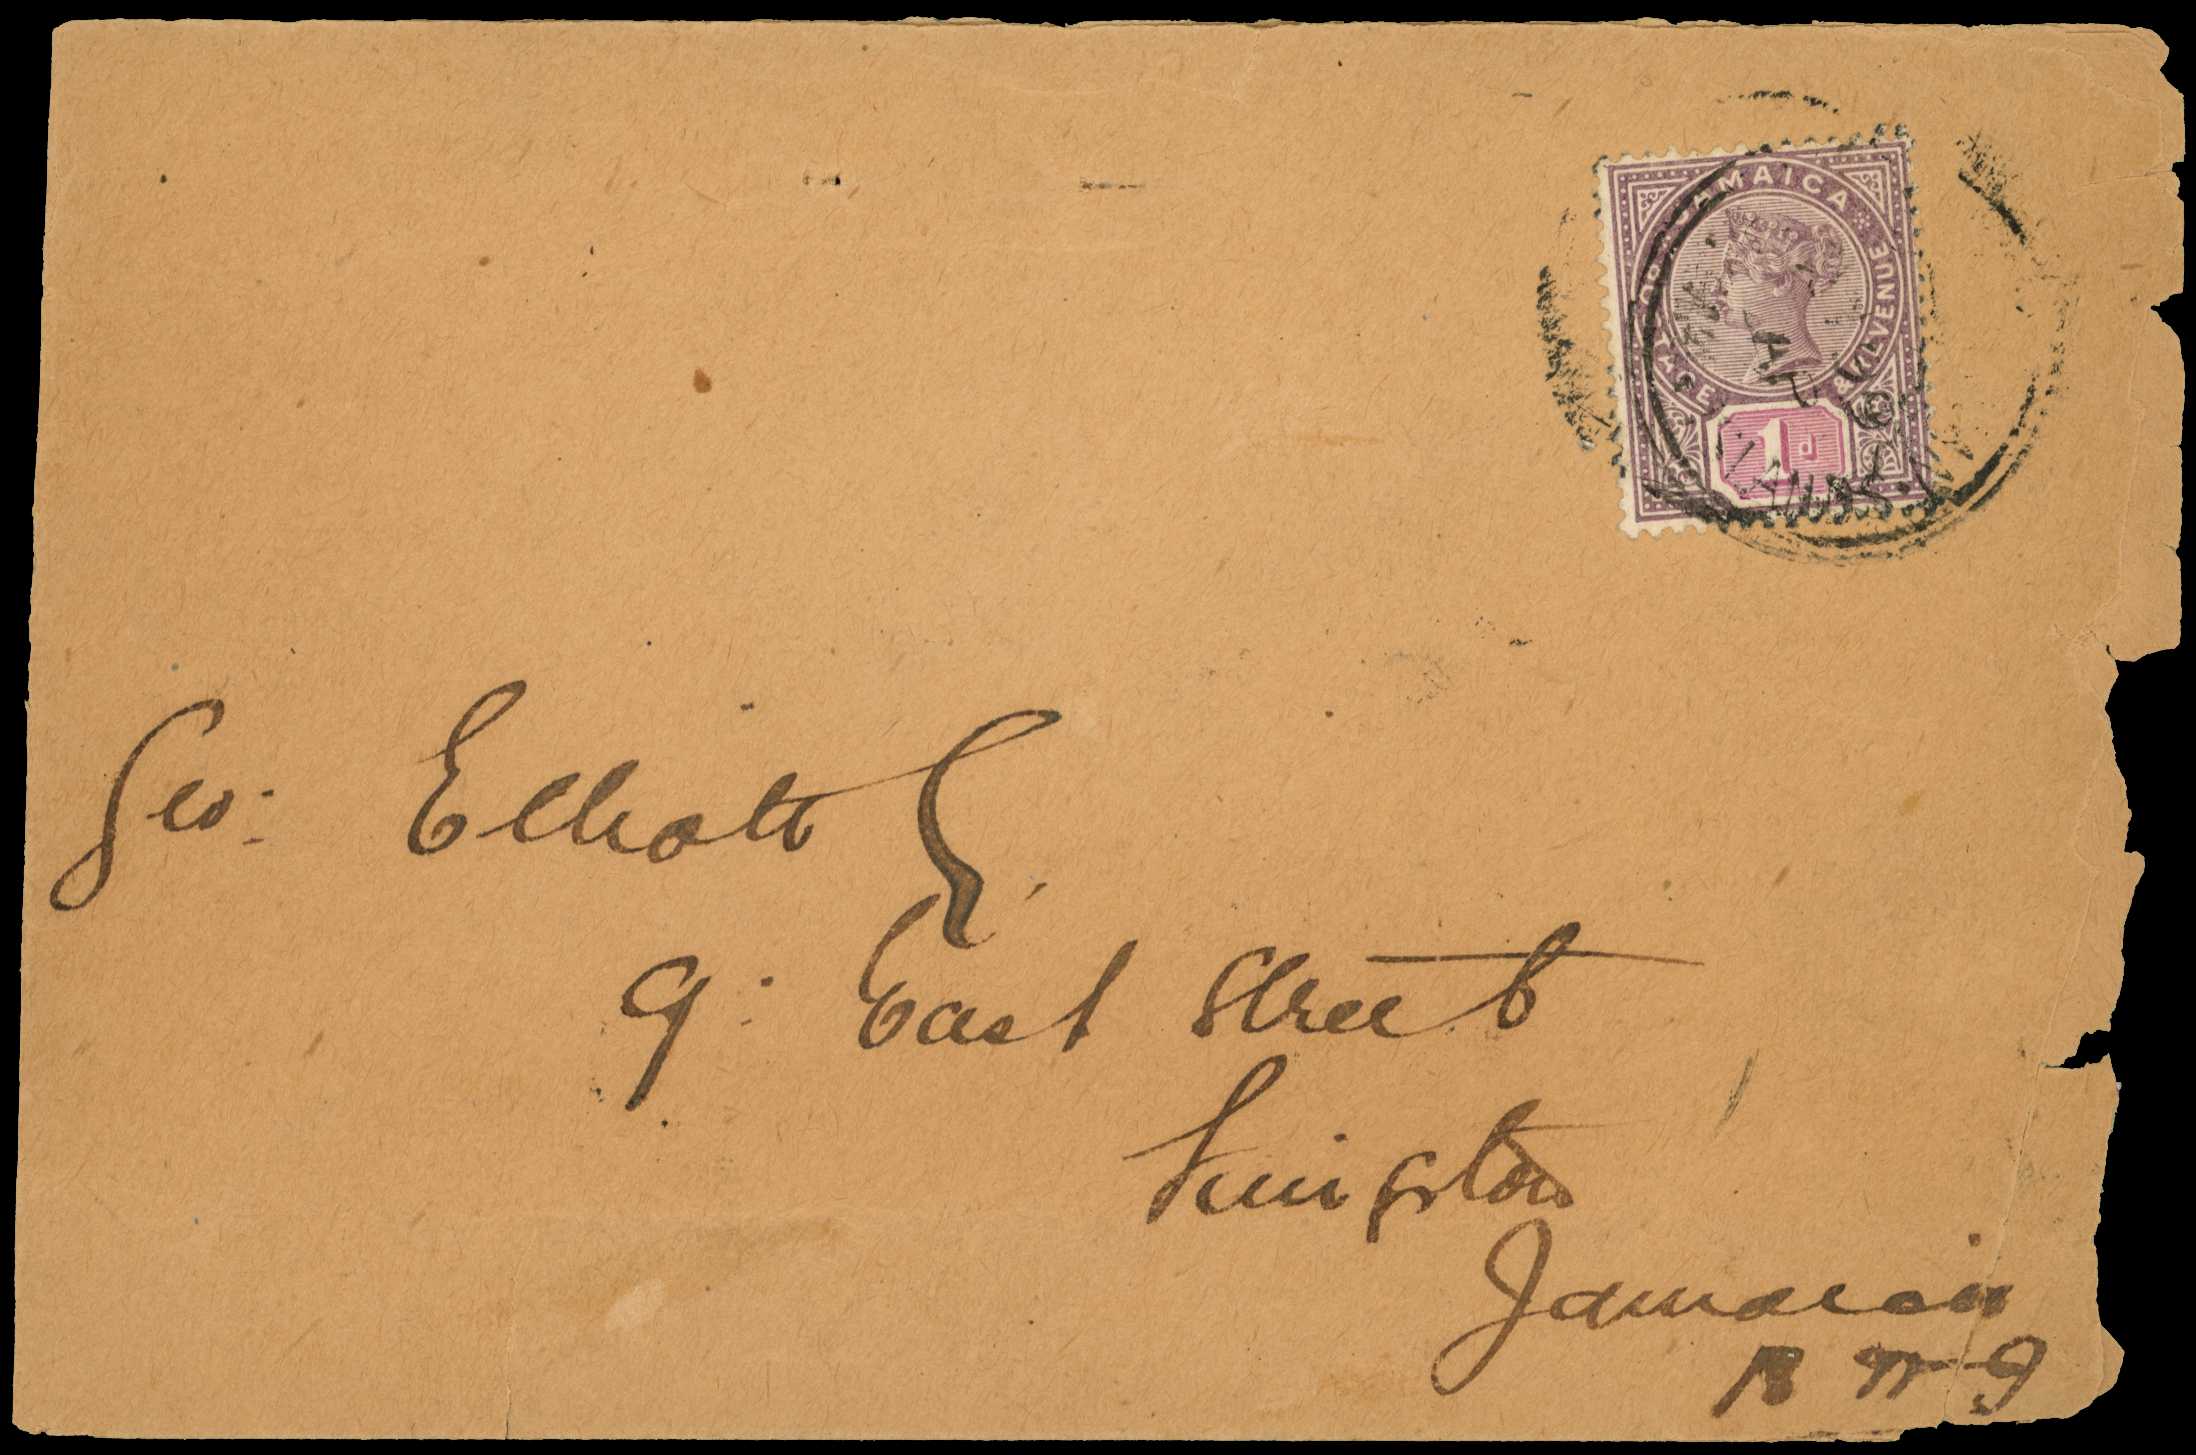 JAMAICA
POSTAGE & REVENUE
1d
AP
ISLANDS
Geo: Elliott
9: East Street
Kingston
Jamaica
B W I